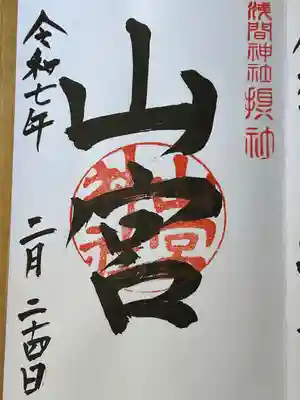 浅間神社摂社
山宮
令和七年 二月 二十四日